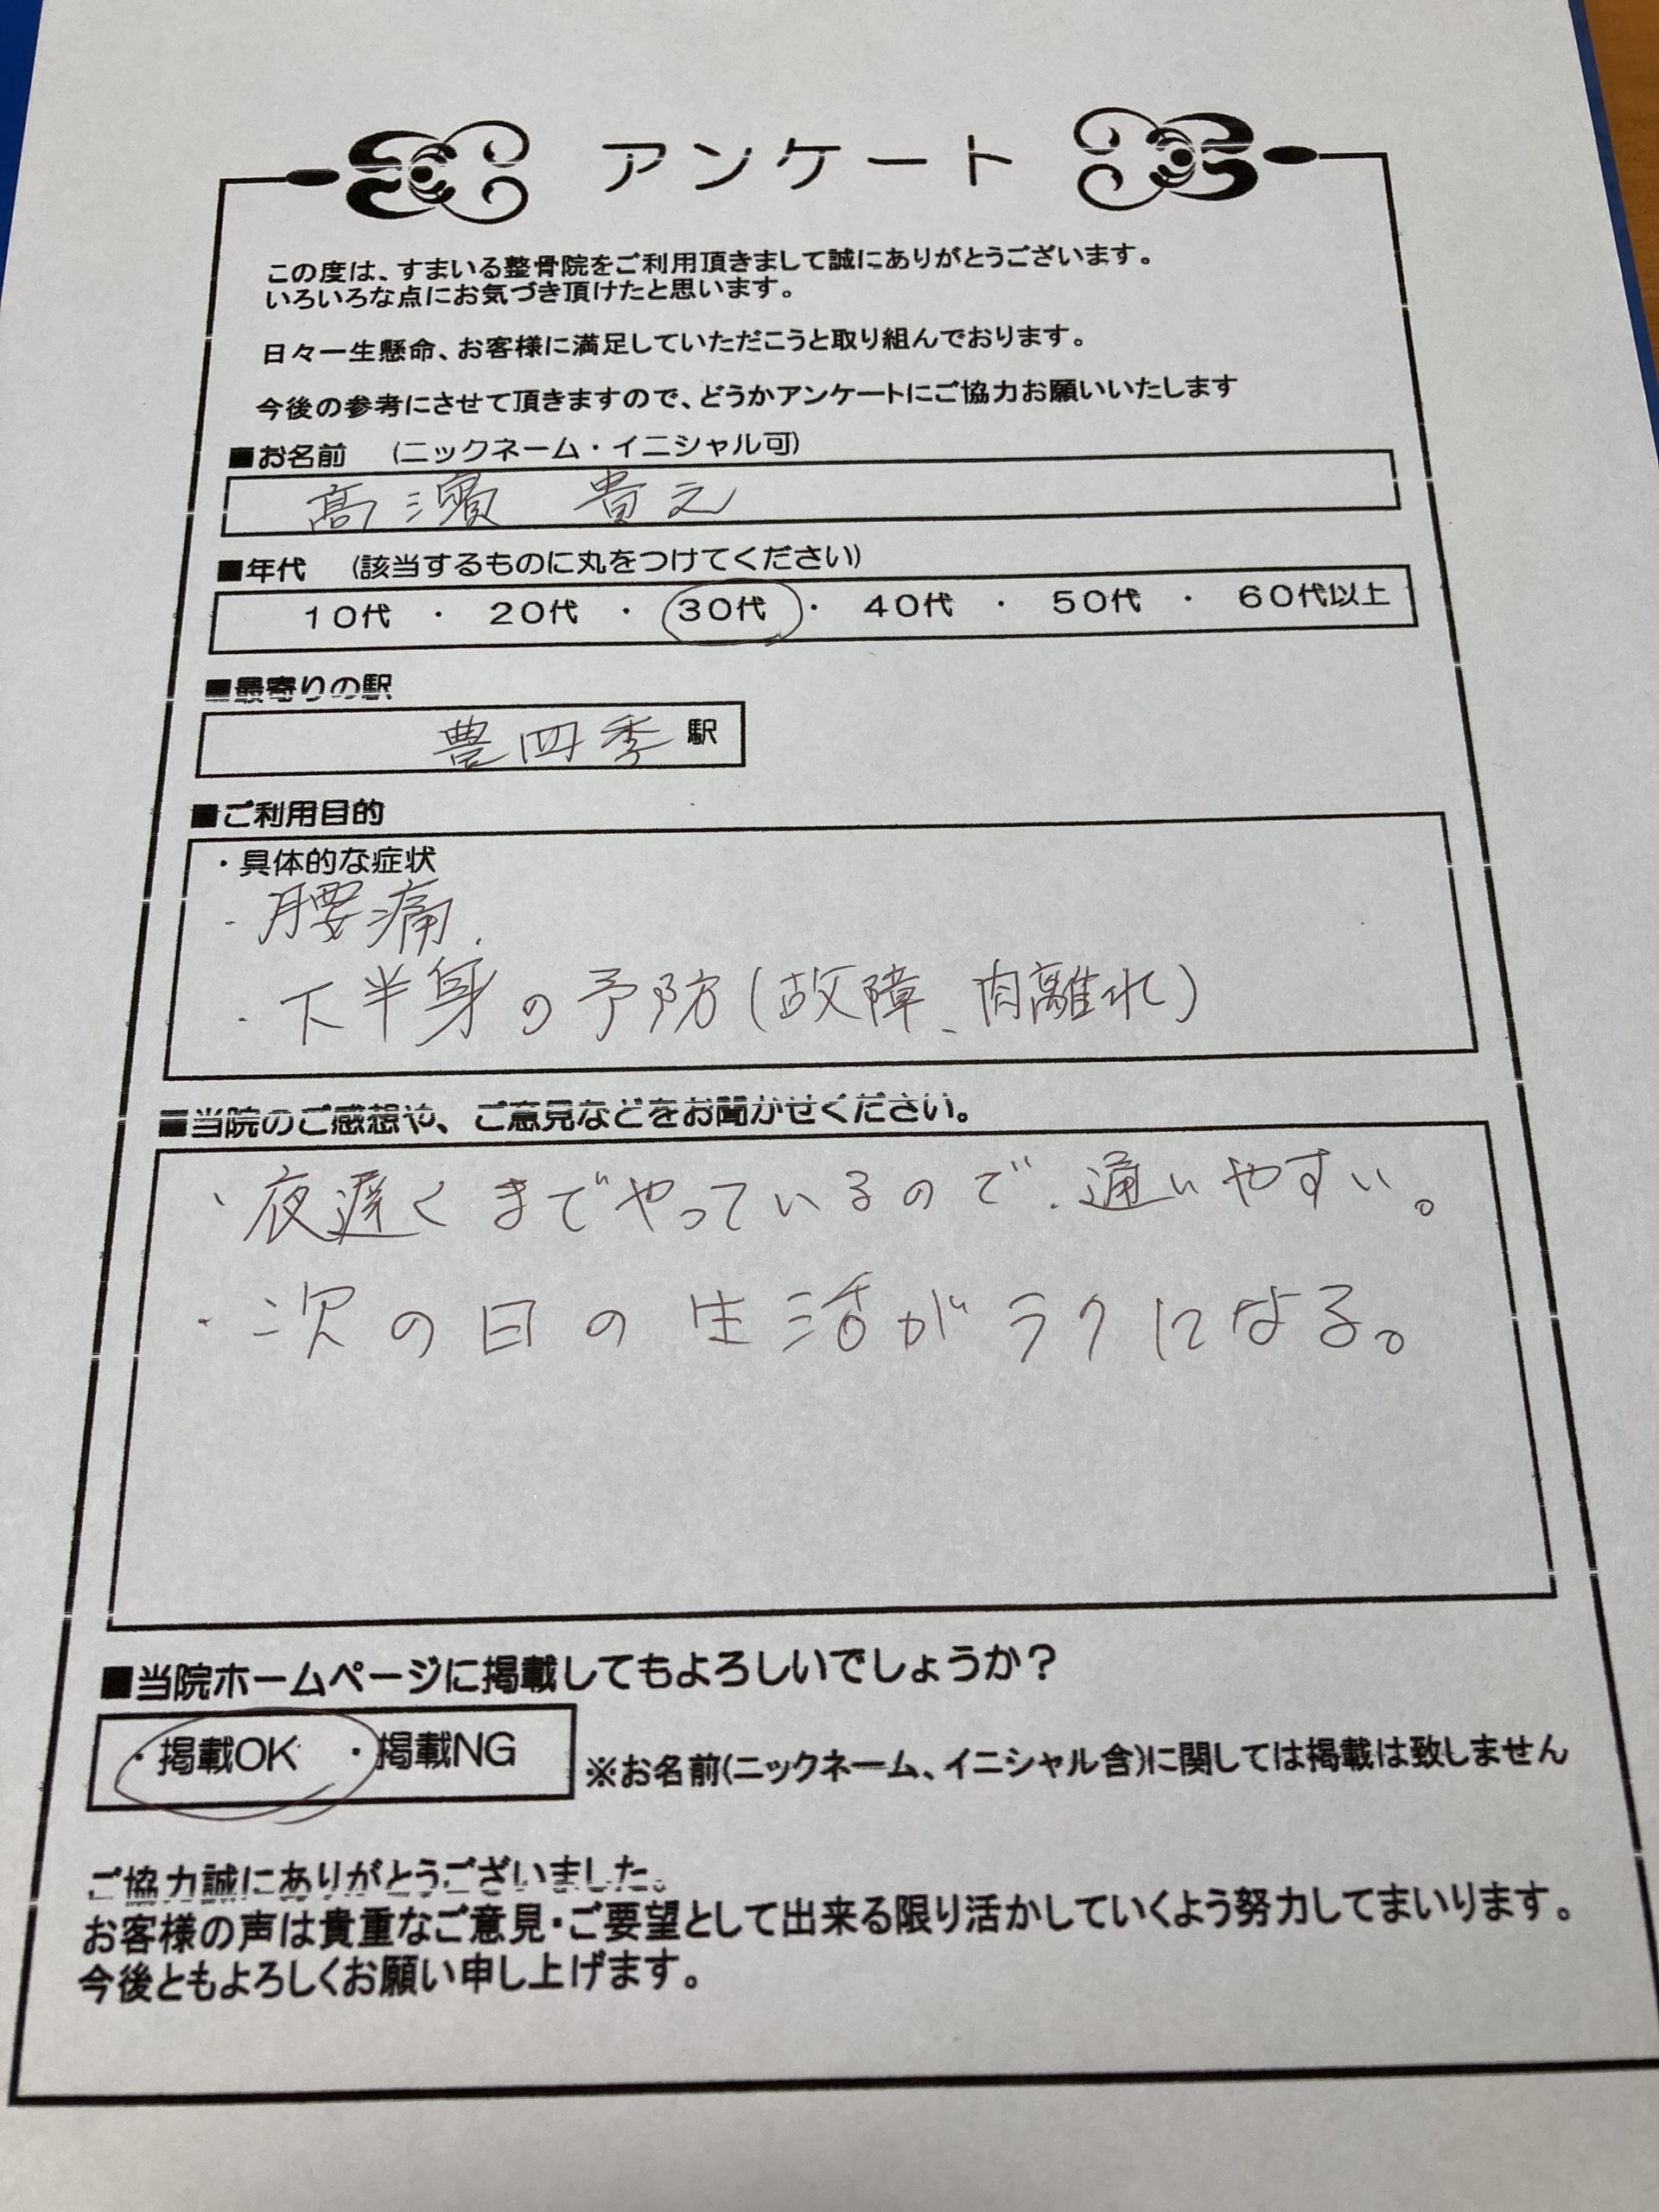 アンケート
この度は、すまいる整骨院をご利用頂きまして誠にありがとうございます。
いろいろな点にお気づき頂けたと思います。
日々一生懸命、お客様に満足していただこうと取り組んでおります。
今後の参考にさせて頂きますので、どうかアンケートにご協力お願いいたします
■お名前 (ニックネーム・イニシャル可)
髙濱 貴之
■年代 (該当するものに丸をつけてください)
10代 ・ 20代 ・ 30代 ・ 40代 ・ 50代 ・ 60代以上
■最寄りの駅
豊四季 駅
■ご利用目的
・具体的な症状
・腰痛.
・下半身の予防(故障、肉離れ)
■当院のご感想や、ご意見などをお聞かせください。
・夜遅くまでやっているので、通いやすい。
・次の日の生活がラクになる。
■当院ホームページに掲載してもよろしいでしょうか?
・掲載OK ・掲載NG ※お名前(ニックネーム、イニシャル含)に関しては掲載は致しません
ご協力誠にありがとうございました。
お客様の声は貴重なご意見・ご要望として出来る限り活かしていくよう努力してまいります。
今後ともよろしくお願い申し上げます。